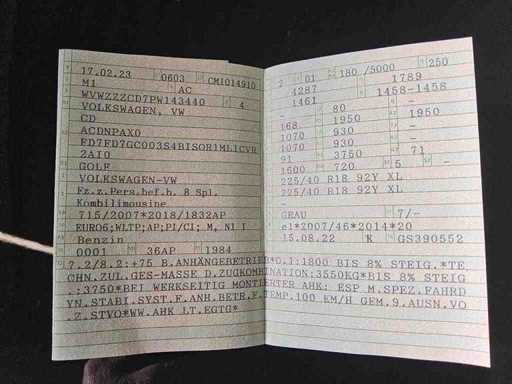 17.02.23 0603 CMI014910
M1 AC
WVWZZZCD7PW143440 4
VOLKSWAGEN, VW
CD
ACDNPAX0
FD7FD7GC003S4BISOR1ML1CVR
2AI0
GOLF
VOLKSWAGEN-VW
Fz.z.Pers.bef.b. 8 Spl.
Kombilimousine
715/2007*2018/1832AP
EURO6;WLTP;AP;PI/CI; M, N1 I
Benzin
0001 36AP 1984
2 01 180 /5000 250
4287 1789
1461 1458-1458
- 80 -
168 1950 1950
1070 930 -
1070 930 -
91 3750 71
1600 720 5 -
225/40 R18 92Y XL
225/40 R18 92Y XL
-
GRAU 7/-
e1*2007/46*2014*20
15.08.22 K GS390552
7.2/8.2:+75 B.ANHÄNGEBETRIEB*O.1:1800 BIS 8% STEIG.*TE
CHN.ZUL.GES-MASSE D.ZUGKOMBINATION:3550KG*BIS 8% STEIG
.:3750*BEI WERKSEITIG MONTIERTER AHK: ESP M.SPEZ.FAHRD
YN.STABI.SYST.F.ANH.BETR.F.TEMP.100 KM/H GEM.9.AUSN.VO
.Z.STVO*WW.AHK LT.EGTG*